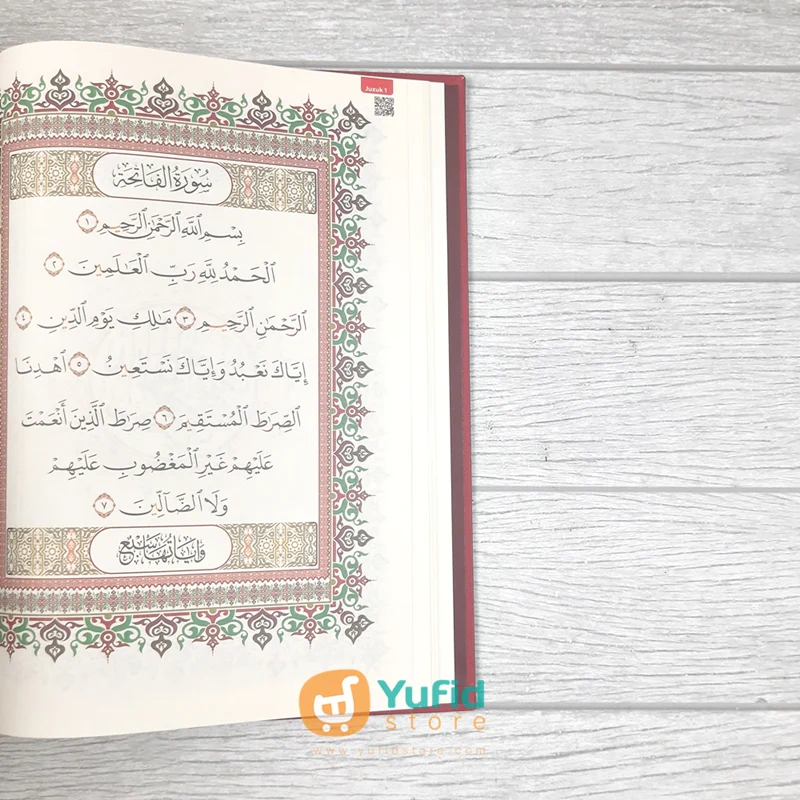 Juzuk 1
سُورَةُ الْفَاتِحَةِ
بِسْمِ ٱللَّهِ ٱلرَّحْمَٰنِ ٱلرَّحِيمِ ١
ٱلْحَمْدُ لِلَّهِ رَبِّ ٱلْعَٰلَمِينَ ٢
ٱلرَّحْمَٰنِ ٱلرَّحِيمِ ٣ مَٰلِكِ يَوْمِ ٱلدِّينِ ٤
إِيَّاكَ نَعْبُدُ وَإِيَّاكَ نَسْتَعِينُ ٥ ٱهْدِنَا
ٱلصِّرَٰطَ ٱلْمُسْتَقِيمَ ٦ صِرَٰطَ ٱلَّذِينَ أَنْعَمْتَ
عَلَيْهِمْ غَيْرِ ٱلْمَغْضُوبِ عَلَيْهِمْ
وَلَا ٱلضَّآلِّينَ ٧
وَآيَاتُهَا سَبْعٌ
Yufid
store
www.yufidstore.com